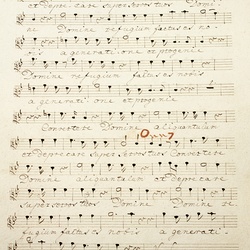 et deprecare super servos tuos Domi
ne Domine refugium factus es nobis
a generatione et progenie
Domine refugium factus es nobis
a generatione et progenie
Convertere Domine aliquantulum
et deprecare super servos tuos Convertere
Domine aliquantulum et deprecare
super servos tuos Domine Domine re
fugium factus es nobis a generati